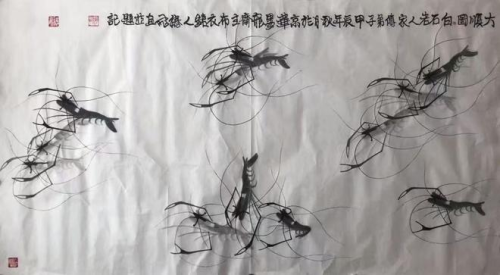 六順圖白石老人家傳弟子甲辰年秋月於京華墨龍齋主布衣錦人題記